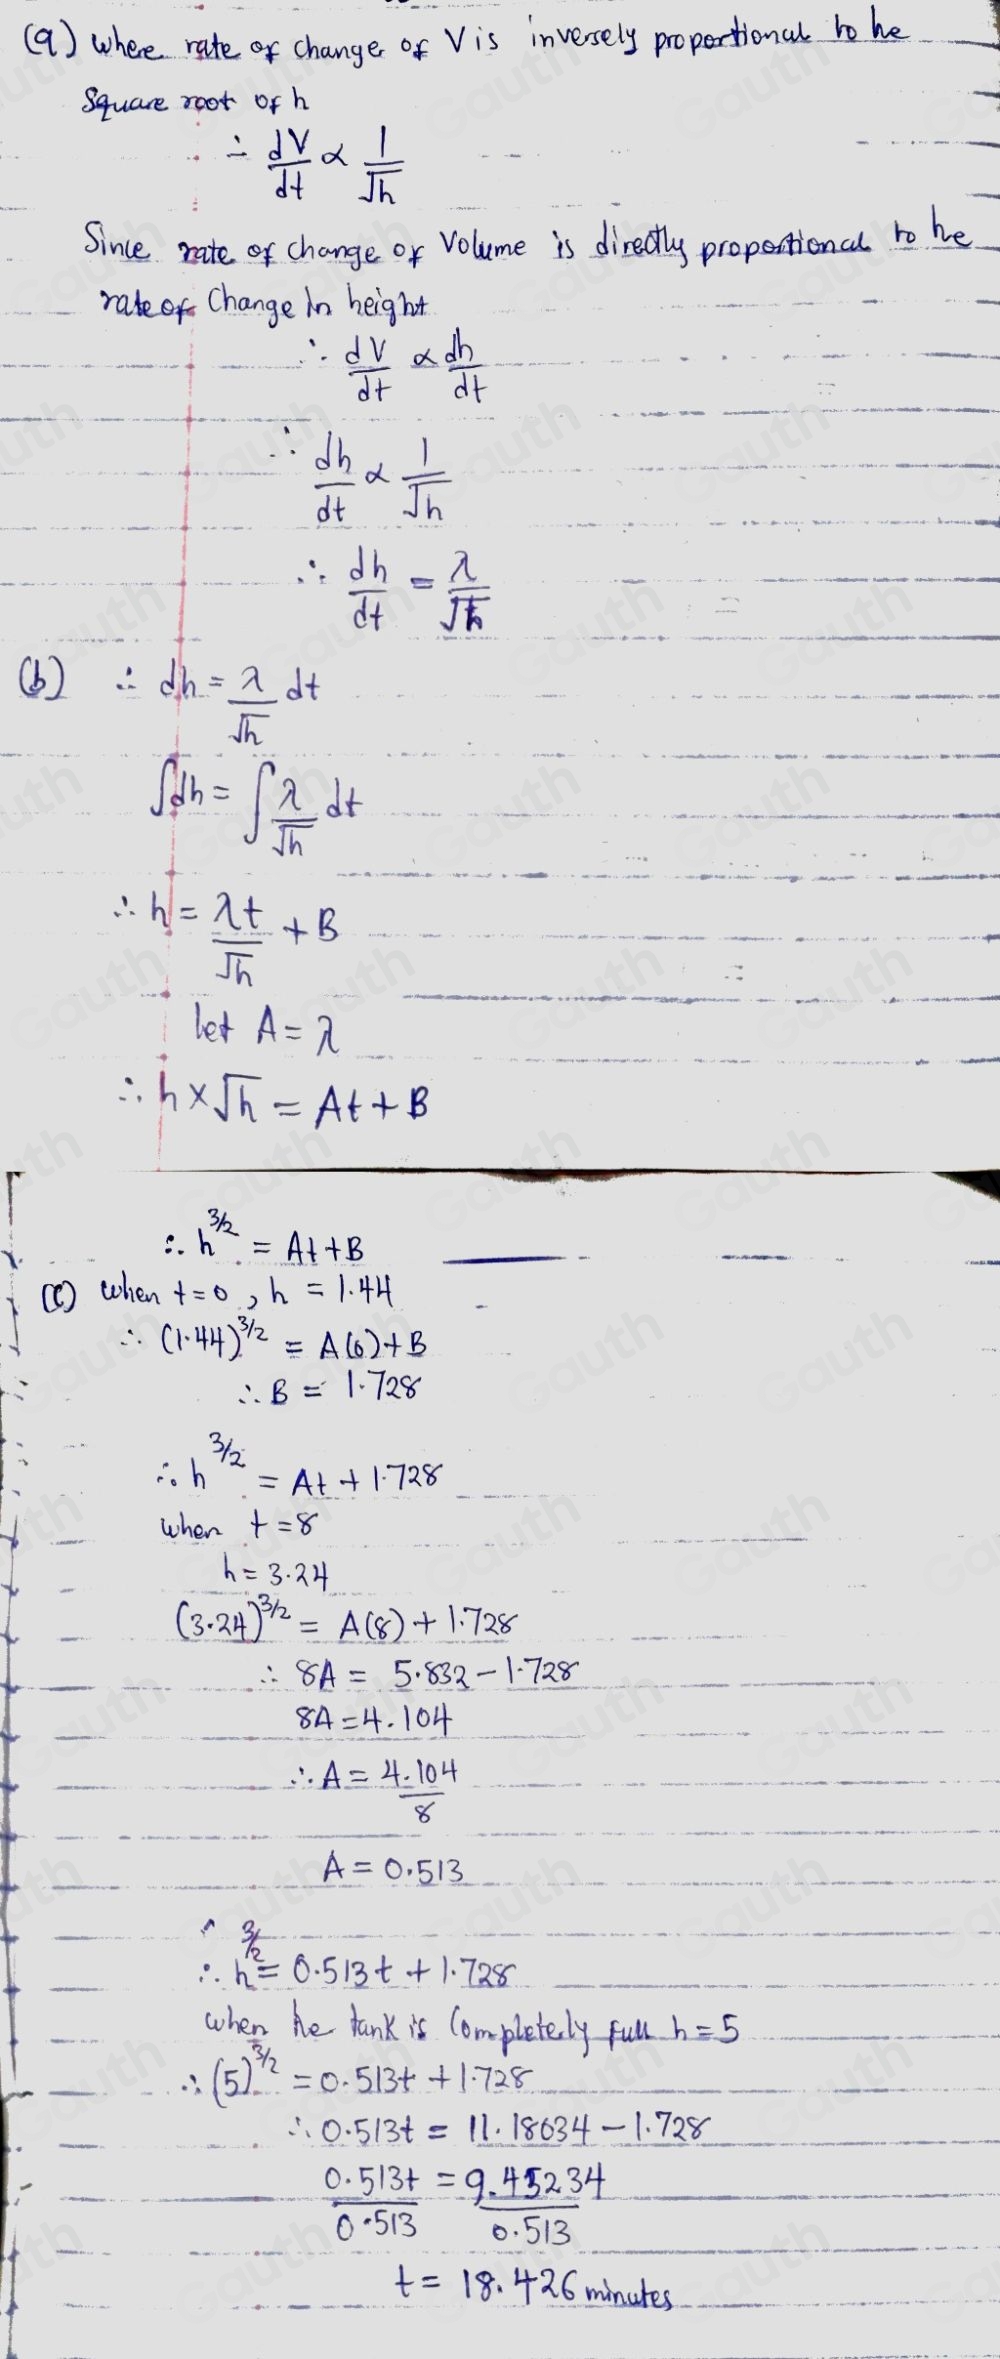 (a) where rate of change of V is inversely proportional to he
Square root of h
∴ dV/dt ∝ 1/√h
Since rate of change of Volume is directly proportional to he
rate of Change in height
∴ dV/dt ∝ dh/dt
∴ dh/dt ∝ 1/√h
∴ dh/dt = λ/√h
(b) ∴ dh = λ/√h dt
∫dh = ∫ λ/√h dt
∴ h = λt/√h + B
let A = λ
∴ h × √h = At + B
∴ h^3/2 = At + B
(c) when t = 0, h = 1.44
∴ (1.44)^3/2 = A(0) + B
∴ B = 1.728
∴ h^3/2 = At + 1.728
when t = 8
h = 3.24
(3.24)^3/2 = A(8) + 1.728
∴ 8A = 5.832 - 1.728
8A = 4.104
∴ A = 4.104/8
A = 0.513
∴ h^3/2 = 0.513t + 1.728
when he tank is Completely full h = 5
∴ (5)^3/2 = 0.513t + 1.728
∴ 0.513t = 11.18034 - 1.728
0.513t/0.513 = 9.45234/0.513
t = 18.426 minutes